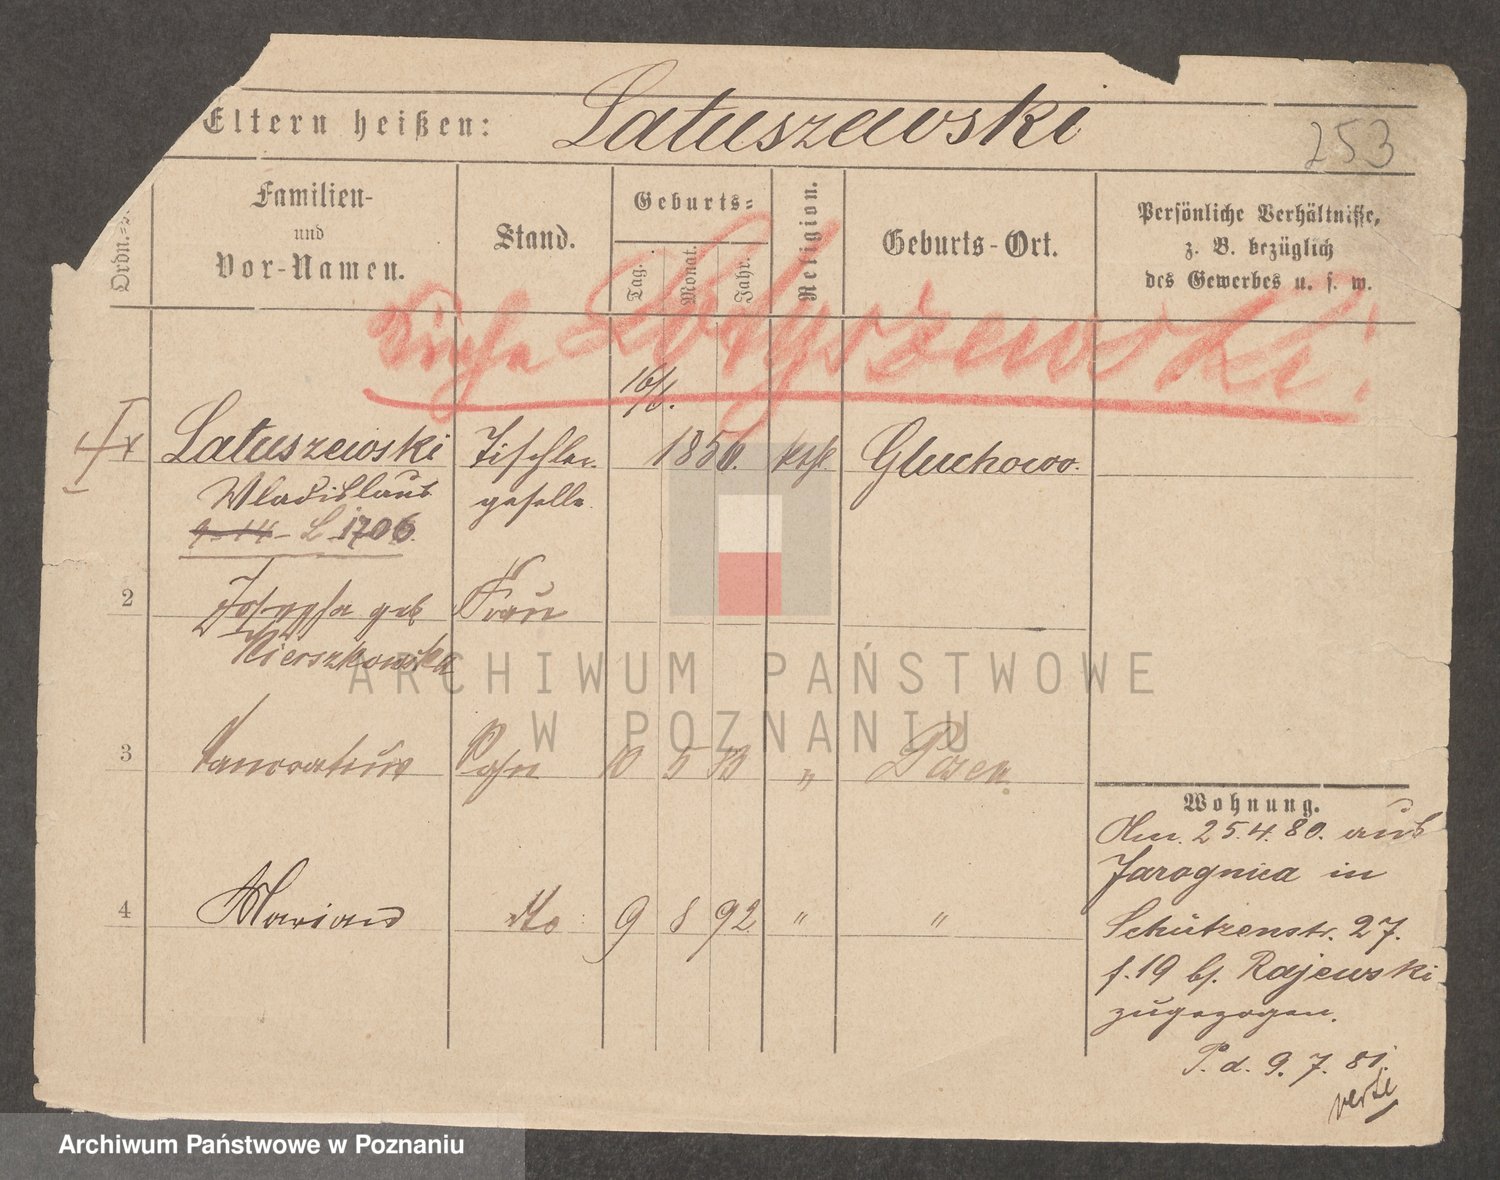 Eltern heißen: Latuszewski
253
Ordn.=
Familien- und Vor-Namen.
Stand.
Geburts=
Tag.
Monat.
Jahr.
Religion.
Geburts-Ort.
Persönliche Verhältnisse,
z. B. bezüglich
des Gewerbes u. s. w.
Siehe Lotyszewski!
16/6.
Latuszewski Tischler- 1850. kath. Gluchowo.
Wladislaus geselle.
L 1706.
2 Josepha geb Frau
Kierszkowska
3 Sohn 10 5 " Posen
4 Marian dto 9 8 92 " "
Wohnung.
Am 25.4.80. aus
Jarognica in
Schützenstr. 27.
f. 19 bs. Rajewski
zugezogen.
P. d. 9. 7. 81.
verte
ARCHIWUM PAŃSTWOWE
W POZNANIU
Archiwum Państwowe w Poznaniu